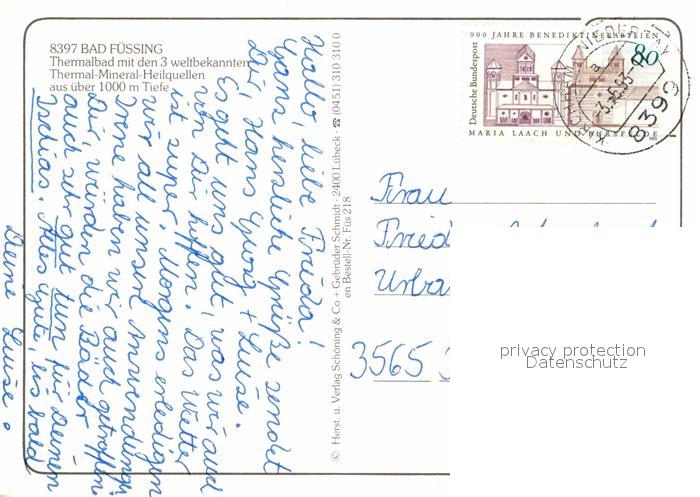 8397 BAD FÜSSING
Thermalbad mit den 3 weltbekannten
Thermal-Mineral-Heilquellen
aus über 1000 m Tiefe
Hallo, liebe Frieda!
Ganz herzliche Grüße sendet
Dir, Hans Georg + Luise.
Es geht uns gut, was wir auch
von Dir hoffen. Das Wetter
ist super. Morgens erledigen
wir all unsere Anwendungen
Irene haben wir auch getroffen
Dir, würden die Bäder
auch sehr gut tun für Deinen
Ischias. Alles Gute, bis bald
Deine Luise.
© Herst. u. Verlag Schöning & Co + Gebrüder Schmidt · 2400 Lübeck · ☎ (0451) 310 310 0
en Bestell-Nr. Füs 218
900 JAHRE BENEDIKTINERABTEIEN
Deutsche Bundespost
80
MARIA LAACH UND BURSFELDE
8399
Frau
Fried
Urba
3565
privacy protection
Datenschutz